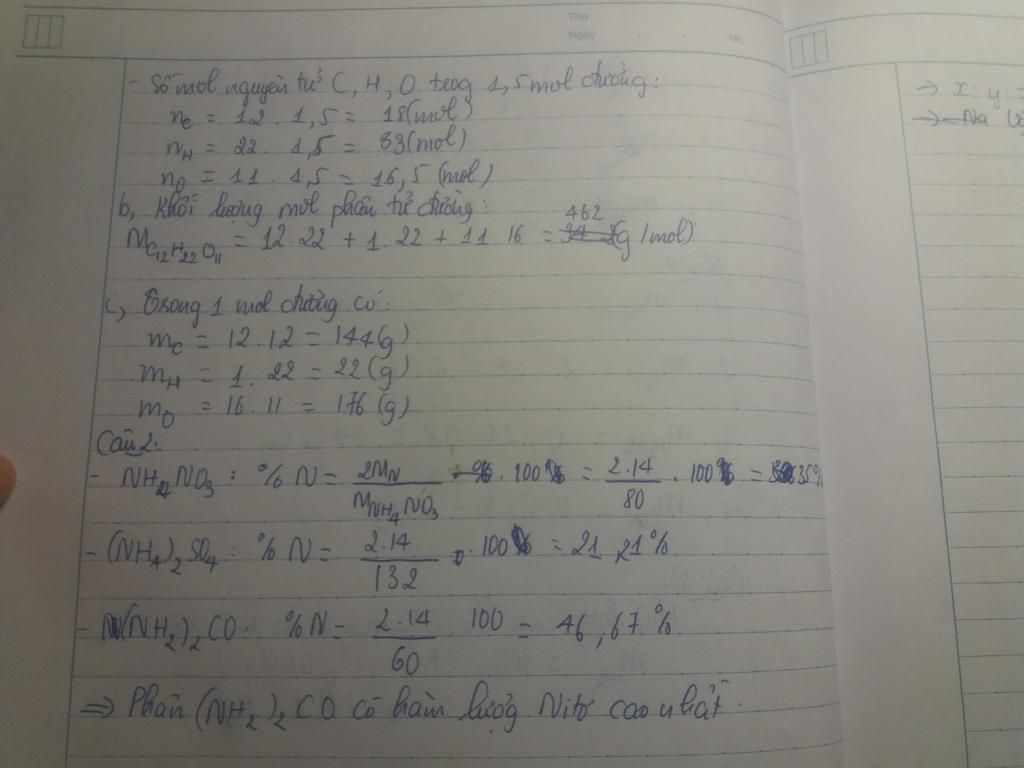 Thứ
Ngày No.
- Số mol nguyên tử C, H, O trog 1,5 mol đường:
nC = 12 . 1,5 = 18 (mol)
nH = 22 . 1,5 = 33 (mol)
nO = 11 . 1,5 = 16,5 (mol)
b, Khối lượng mol phân tử đường:
462
MC12H22O11 = 12.22 + 1.22 + 11.16 = (g/mol)
c, Trong 1 mol đường có:
mC = 12.12 = 144 (g)
mH = 1.22 = 22 (g)
mO = 16.11 = 176 (g)
Câu 2:
- NH4NO3 : % N = 2MN / MNH4NO3 . 100% = 2.14 / 80 . 100% = 35%
- (NH4)2SO4 : % N = 2.14 / 132 . 100% = 21,21%
- (NH2)2CO . %N = 2.14 / 60 . 100 = 46,67%
=> Phân (NH2)2CO có hàm lượng Nitơ cao nhất.
→ x : y :
→ Na